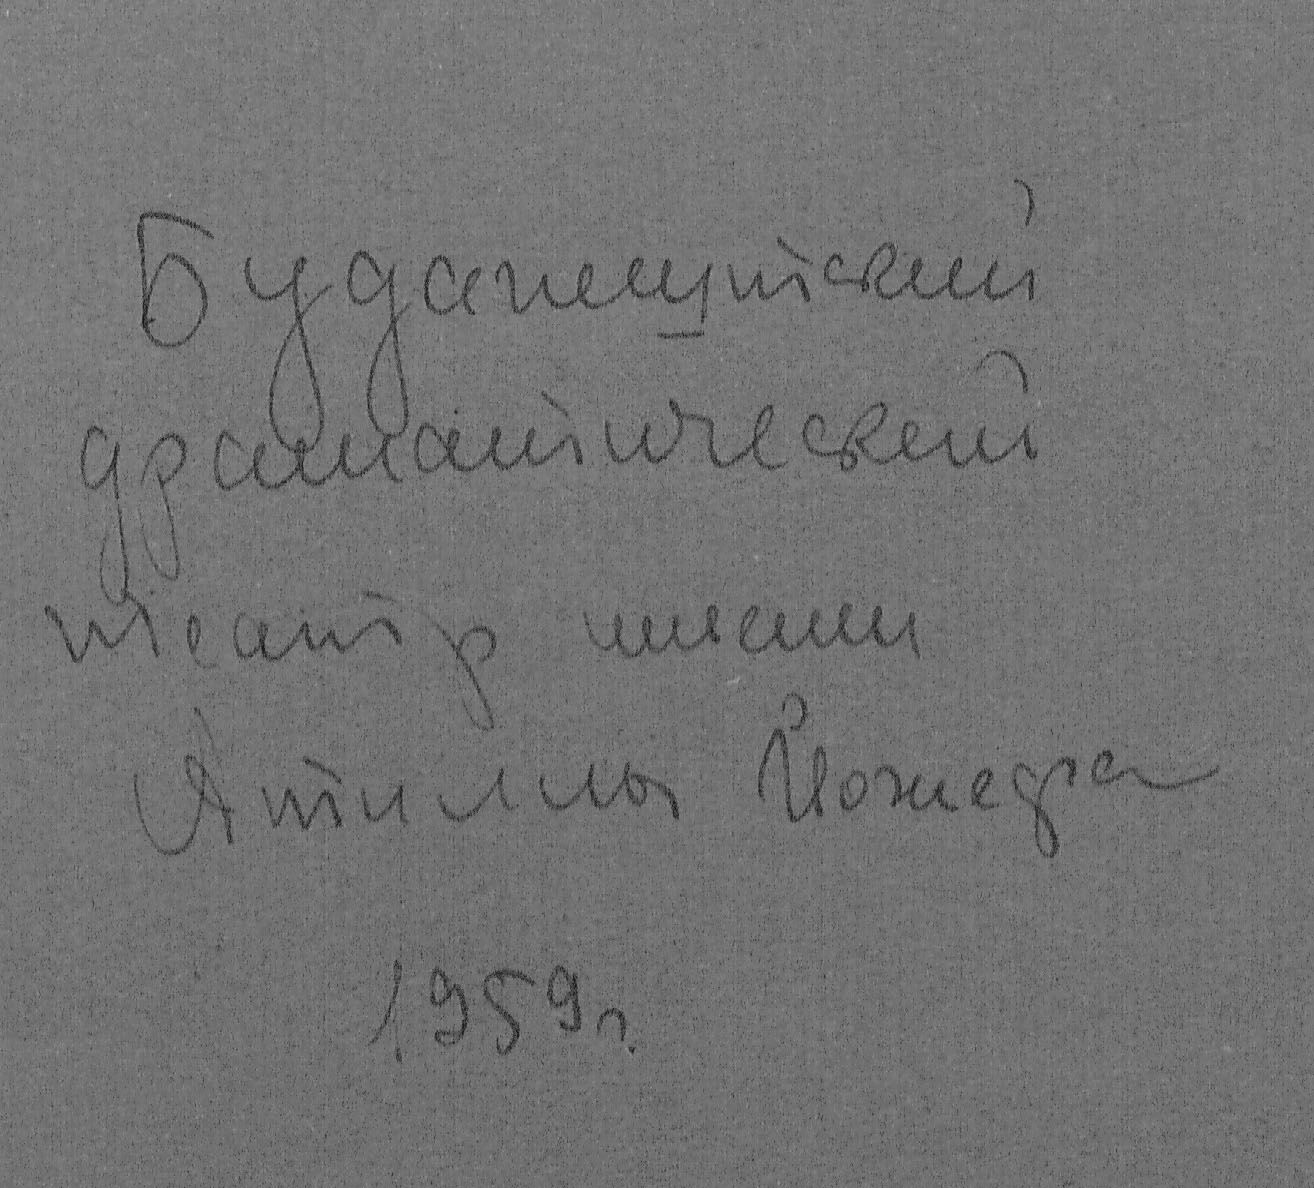 Будапештский
драматический
театр имени
Аттиллы Йожефа
1959г.